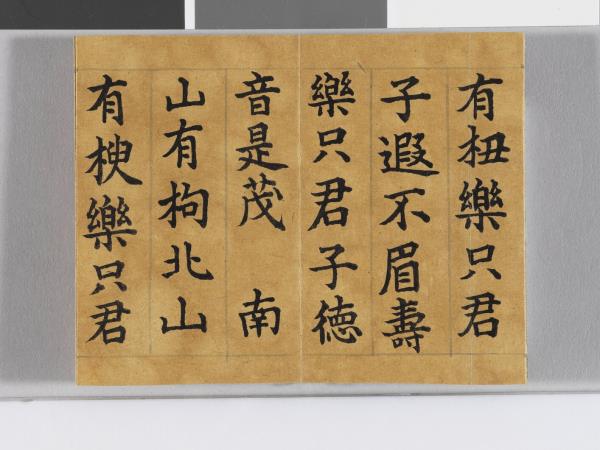 有杻樂只君
子遐不眉壽
樂只君子德
音是茂　南
山有枸北山
有楰樂只君